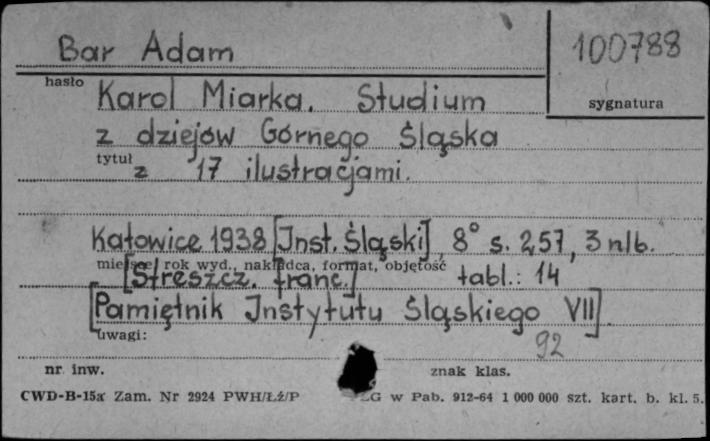 Bar Adam 100788
hasło sygnatura
Karol Miarka. Studium
z dziejów Górnego Śląska
tytuł
z 17 ilustracjami.
Katowice 1938 [Inst. Śląski], 8° s. 257, 3 nlb.
miejsce, rok wyd., nakładca, format, objętość
[Streszcz. franc.] tabl.: 14
[Pamiętnik Instytutu Śląskiego VII].
uwagi:
92
nr inw. znak klas.
CWD-B-15a Zam. Nr 2924 PWH/Łź/P ZG w Pab. 912-64 1 000 000 szt. kart. b. kl. 5.